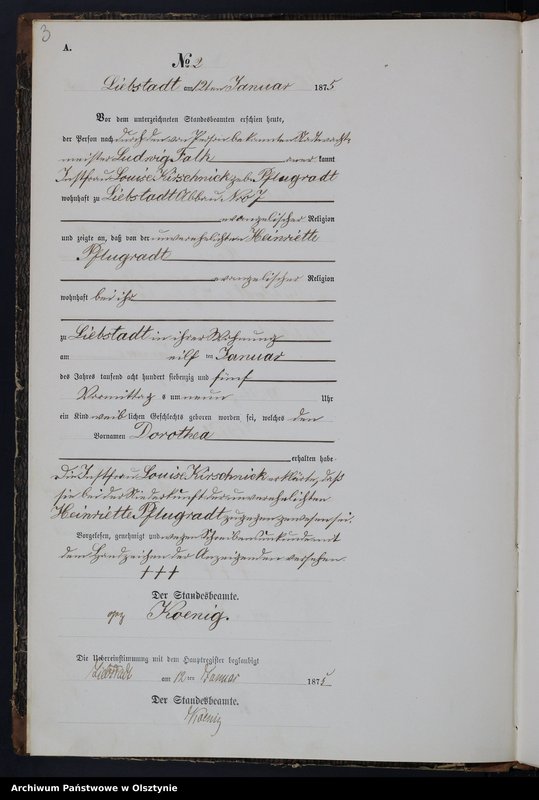 3
A.
No 2
Liebstadt am 12ten Januar 1875
Vor dem unterzeichneten Standesbeamten erschien heute,
der Person nach durch den von Person bekannten
meister Ludwig Fath kannt
Instfrau Louise Kirschnick geb. Pflugradt
wohnhaft zu Liebstadt Abbau Nro 7
evangelischer Religion
und zeigte an, daß von der unverehelichten Heinriette
Pflugradt
evangelischer Religion
wohnhaft bei ihr
zu Liebstadt in ihrer Wohnung
am eilf ten Januar
des Jahres tausend acht hundert siebenzig und fünf
Vormittags um neun Uhr
ein Kind weiblichen Geschlechts geboren worden sei, welches den
Vornamen Dorothea
erhalten habe
Die Instfrau Louise Kirschnick erklärte, daß
sie bei der Niederkunft der unverehelichten
Heinriette Pflugradt zugegen gewesen sei.
Vorgelesen, genehmigt und wegen Schreibensunkunde mit
dem Handzeichen der Anzeigenden versehen.
+++
Der Standesbeamte.
gez Koenig.
Die Uebereinstimmung mit dem Hauptregister beglaubigt
Liebstadt am 12 ten Januar 1875
Der Standesbeamte.
Koenig
Archiwum Państwowe w Olsztynie